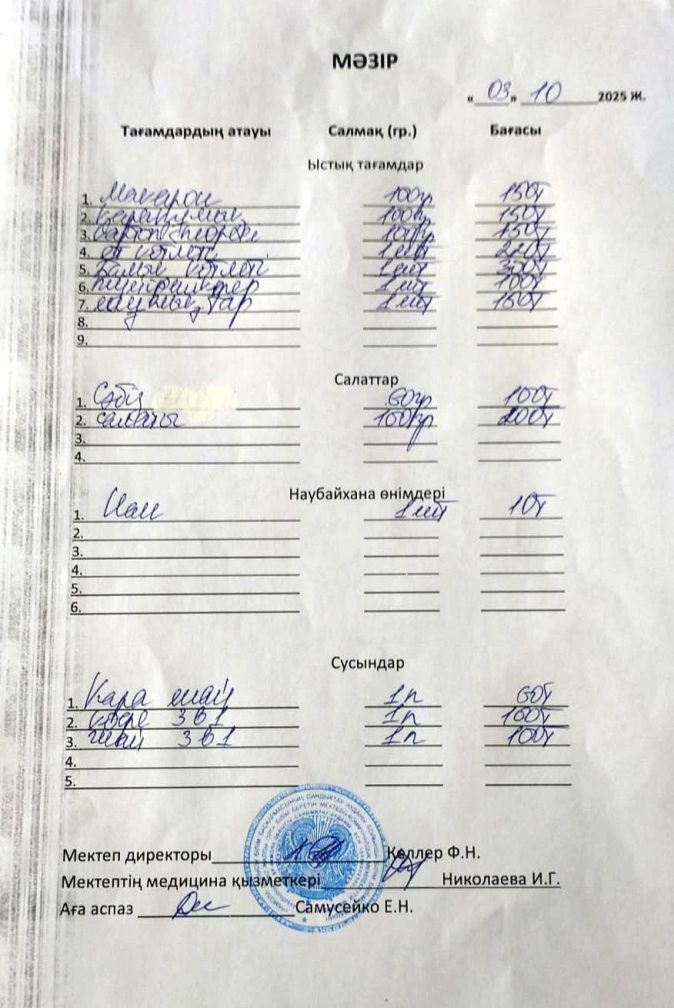 МӘЗІР
« 03 » 10 2025 Ж.
Тағамдардың атауы Салмақ (гр.) Бағасы
Ыстық тағамдар
1. Макарон 100гр 150т
2. Қарақұмық 100гр 150т
3. картоп пюреі 100гр 150т
4. ет котлеті 1шт 220т
5. балық котлеті 1шт 300т
6. 1шт 100т
7. шұжықтар 1шт 160т
8.
9.
Салаттар
1. Сәбіз 60гр 100т
2. салаты 100гр 200т
3.
4.
Наубайхана өнімдері
1. Нан 1шт 10т
2.
3.
4.
5.
6.
Сусындар
1. Қара шай 1п 60т
2. кофе 3в1 1п 100т
3. шай 3в1 1п 100т
4.
5.
Мектеп директоры Келлер Ф.Н.
Мектептің медицина қызметкері Николаева И.Г.
Аға аспаз Самусейко Е.Н.